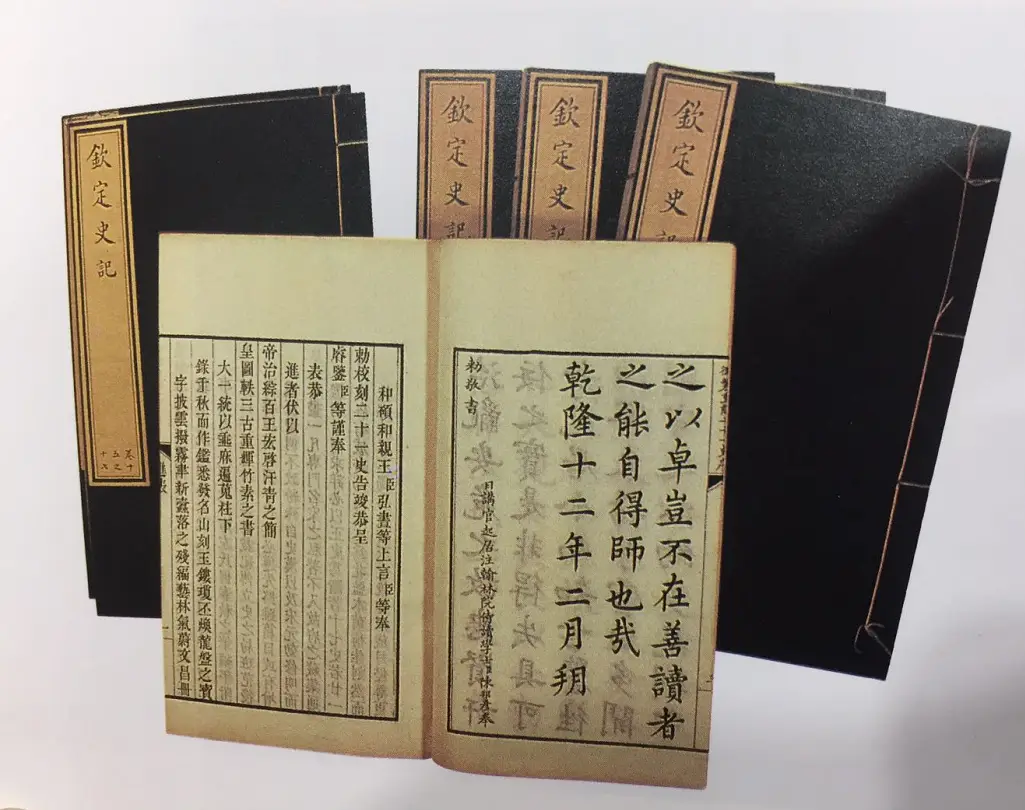 欽定史記
卷五十之五十九
欽定史記
欽定史記
欽定史記
之以卓豈不在善讀者
之能自得師也哉
乾隆十二年二月朔
日講官起居注翰林院侍讀學士臣陳邦彥奉
勅敬書
和碩和親王臣弘晝等上言臣等奉
勅校刻二十一史告竣恭呈
睿鑒臣等謹奉
表恭
進者伏以
帝治綜百王玄啓汗青之簡
皇圖軼三古重輝竹素之書
大一統以垂庥遍蒐柱下
錄千秋而作鑑悉發名山刻玉鏤瓊丕煥龍盤之寶
字披雲撥霧聿新蠹落之殘編藝林氣蔚文昌冊